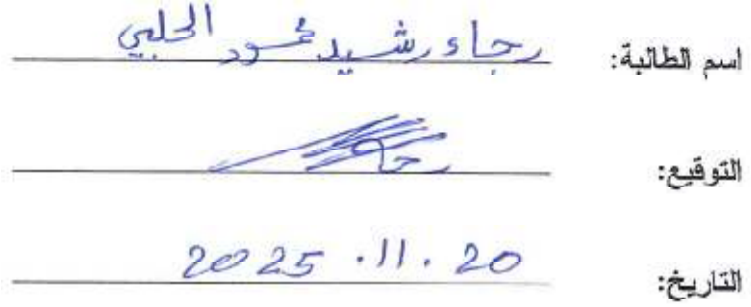 اسم الطالبة: رجاء رشيد محمود الحلبي
التوقيع: رجاء
التاريخ: 20 . 11 . 2025